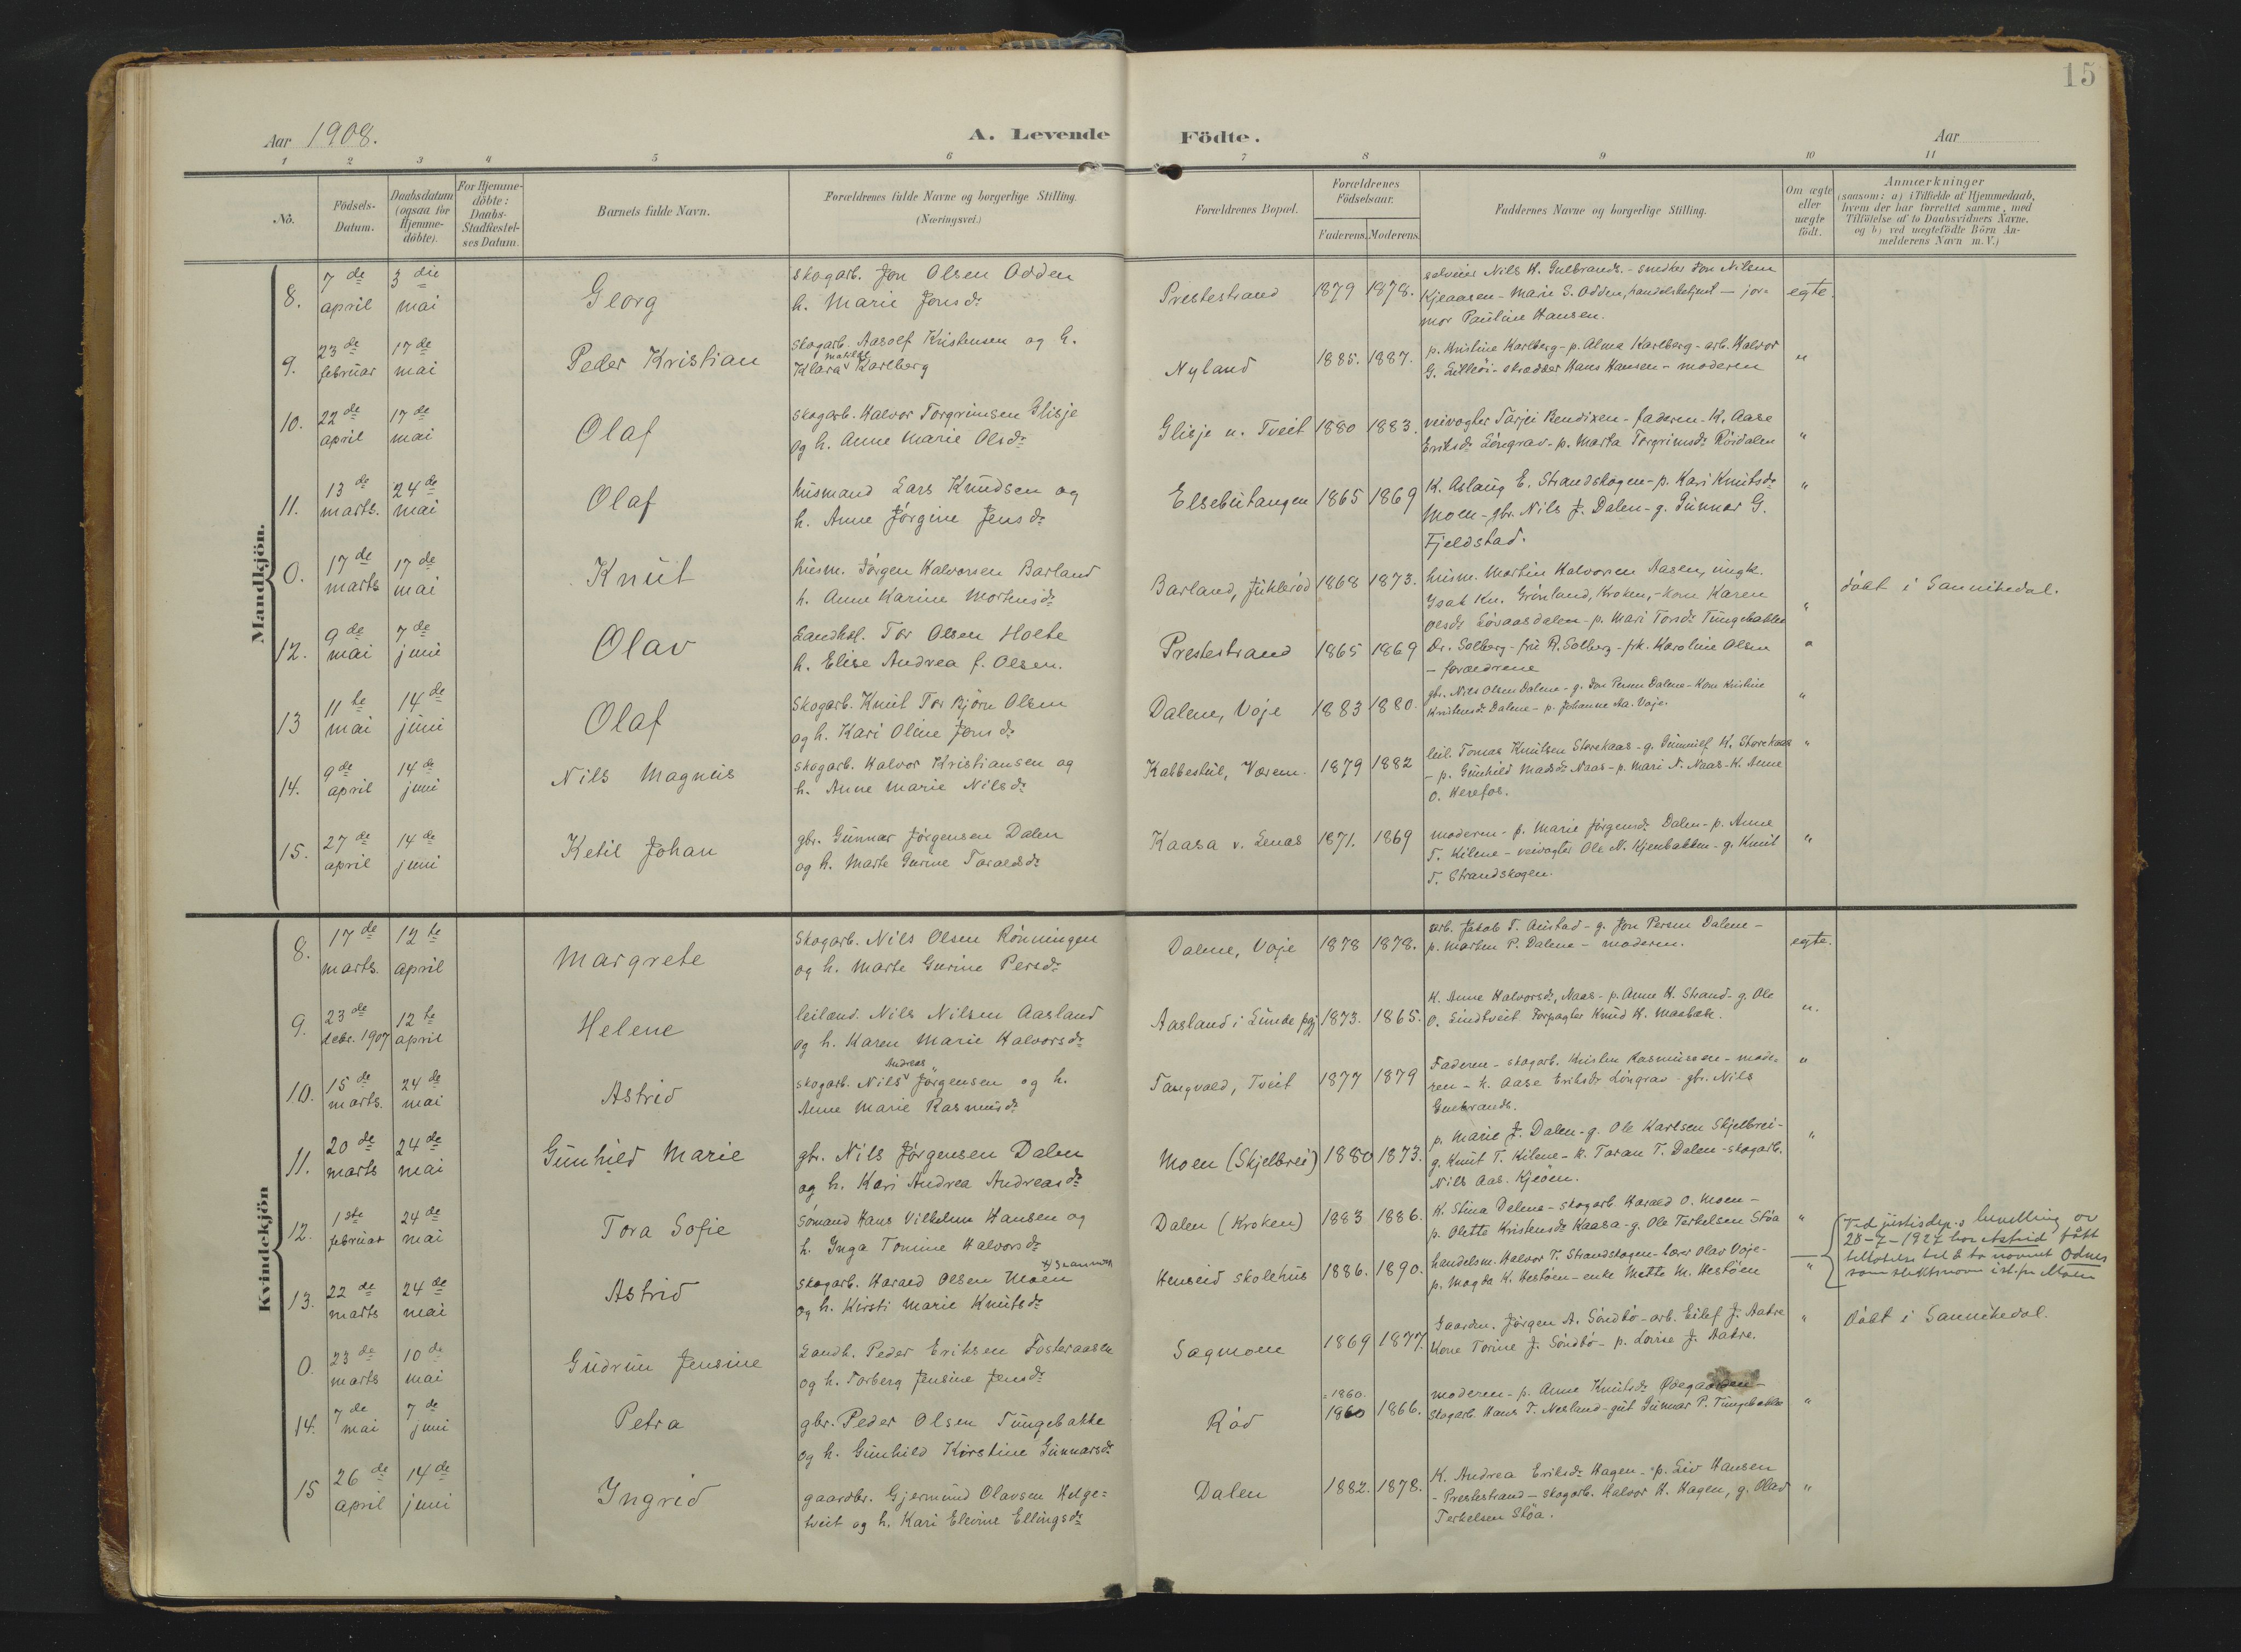 15
Aar 1908.
A. Levende Födte.
Aar
1 2 3 4 5 6 7 8 9 10 11
No.
Födsels-Datum.
Daabsdatum (ogsaa for Hjemme-döbte).
For Hjemme-döbte: Daabs-Stadfæstel-ses Datum.
Barnets fulde Navn.
Forældrenes fulde Navne og borgerlige Stilling. (Næringsvei.)
Forældrenes Bopæl.
Forældrenes Födselsaar.
Faderens. Moderens.
Faddernes Navne og borgerlige Stilling.
Om ægte eller uægte födt.
Anmærkninger
(saasom: a) i Tilfælde af Hjemmedaab,
hvem der har forrettet samme, med
Tilföielse af to Daabsvidners Navne.
og b) ved uægtefödte Börn An-
melderens Navn m. V.)
Mandkjön.
8. 7de april 3die mai Georg
skogarb. Jon Olsen Odden
h. Marie Jonsdr
Prestestrand 1879 1878.
Nils H. Gulbrands. - snedker Jon Nilsen
Kjeaasen - Marie S. Odden, handelsbetjent - jor=
mor Pauline Hansen.
egte.
9. 23de februar 17de mai Peder Kristian
skogarb. Aasolf Kristensen og h.
Klara Matilde Karlberg
Nyland 1885. 1887.
p. Kristine Karlberg - p. Alma Karlberg - arb. Halvor
G. Lilleöi - skrædder Hans Hansen - moderen
"
10. 22de april 17de mai Olaf
skogarb. Halvor Torgrimsen Glisje
og h. Anne Marie Olsdr
Glisje u. Tveit 1880 1883.
veivogter Tarjei Bendixen - faderen - K. Aase
Eriksdr Löngrav - p. Marta Torgrimsdr Röidalen
"
11. 13de marts. 24de mai Olaf
husmand Lars Knudsen og
h. Anne Jörgine Jensdr
Elsebutangen 1865 1869
K. Aslaug E. Strandskogen - p. Kari Knutsdr
Moen - gbr. Nils J. Dalen - g. Gunnar G.
Fjeldstad.
"
0. 17de marts 17de mai Knut
husm. Jörgen Halvorsen Barland
h. Anne Karine Mortensdr
Barland, 1868 1873.
husm. Martin Halvorsen Aasen, ungk.
Isak Kn. Grönland, Kroken, - kone Karen
Olsdr Lövaasdalen - p. Mari Torsdr Tungebakken
"
döbt i Sannikedal.
12. 9de mai 7de juni Olav
Landhdl. Tor Olsen Holte
h. Elise Andrea f. Olsen.
Prestestrand 1865 1869
Dr. Solberg - fru R. Solberg - frk. Karoline Olsen
- forældrene
"
13 11te mai 14de juni Olaf
Skogarb. Knut Tor Björn Olsen
og h. Kari Oline Jonsdr
Dalene, Voje 1883 1880.
gbr. Nils Olsen Dalene - g. Jon Persen Dalene - Kone Kristine
Kristensdr Dalene - p. Johanne Aa. Voje.
"
14. 9de april 14de juni Nils Magnus
skogarb. Halvor Kristiansen og
h. Anne Marie Nilsdr
Kabbestul, Værem. 1879 1882
leil. Tomas Knutsen Storekaas - g. Gunnulf K. Storekaas
- p. Gunhild Madsdr Naas - p. Mari N. Naas - K. Anne
O. Herefos.
"
15. 27de april 14de juni Ketil Johan
gbr. Gunnar Jörgensen Dalen
og h. Marte Gurine Taraldsdr
Kaasa v. Lenas 1871. 1869
moderen - p. Marie Jörgensdr Dalen - p. Anne
T. Kilene - veivogter Ole N. Kjenbakken - g. Knut
T. Strandskogen.
"
Kvindekjön
8. 17de marts. 12te april Margrete
Skogarb. Nils Olsen Rönningen
og h. Marte Gurine Persdr
Dalene, Voje 1878 1878.
arb. Jakob T. Austad - g. Jon Persen Dalene -
p. Marten P. Dalene - moderen.
egte.
9. 23de debr. 1907 12te april Helene
leilænd. Nils Nilsen Aasland
og h. Karen Marie Halvorsdr
Aasland i Lunde pgj 1873. 1865.
K. Anne Halvorsdr, Naas - p. Anne H. Strand - g. Ole
O. Lindtveit. Forpagter Knud H. Maabæk.
".
10. 15de marts. 24de mai Astrid
skogarb. Nils Andreas Jörgensen og h.
Anne Marie Rasmusdr
Tangvald, Tveit 1877 1879
Faderen - skogarb. Kristen Rasmussen - mode=
ren - k. Aase Eriksdr Löngrav - gbr. Nils
Gulbrands.
"
11. 20de marts 24de mai Gunhild Marie
gbr. Nils Jörgensen Dalen
og h. Kari Andrea Andreasdr
Moen (Skjelbrei) 1880 1873.
p. Marie J. Dalen - g. Ole Karlsen Skjelbrei -
g. Knut T. Kilene - k. Taran T. Dalen - skogarb.
Nils Aas. Kjeöen.
"
12. 1ste februar 24de mai Tora Sofie
Sömand Hans Vilhelm Hansen og
h. Inga Tomine Halvorsdr
Dalen (Kroken) 1883 1886.
K. Stina Dalene - skogarb. Harald O. Moen -
p. Olette Kristensdr Kaasa - g. Ole Terkelsen Stöa
"
13. 22de marts 24de mai Astrid
skogarb. Harald Olsen Moen
og h. Kirsti Marie Knutsdr
Henseid skolehus 1886. 1890.
handelsm. Halvor T. Strandskogen - lærer Olav Voje -
p. Magda K. Hestöen - enke Mette M. Hestöen
"
Ved justisdep.s bevilling av
28-7-1927 har Astrid fått
tillatelse til å ta navnet Ödnes
som slektsnavn ist. for Moen
0. 23de marts 10de mai Gudrun Jensine
Landh. Peder Eriksen Fosteraasen
og h. Torberg Jensine Jensdr
Sagmoen 1869 1877.
Gaardm. Jörgen A. Söndbö - arb. Eilef J. Aatre
Kone Torine J. Söndbö - p. Lovise J. Aatre.
"
döbt i Sannikedal.
14. 7de mai 7de juni Petra
gbr. Peder Olsen Tungebakke
og h. Gunhild Kirstine Gunnarsdr
Röd 1860. 1860 1866.
moderen - p. Anne Knutsdr Ödegaarden -
skogarb. Hans T. Nesland - gut Gunnar P. Tungebakke
"
15 26de april 14de juni Ingrid
gaardbr. Gjermund Olavsen Helge=
tveit og h. Kari Elevine Ellingsdr
Dalen 1882. 1878.
K. Andrea Eriksdr Hagen - p. Liv Hansen
- Prestestrand - skogarb. Halvor H. Hagen, g. Olav
Terkelsen Stöa.
"